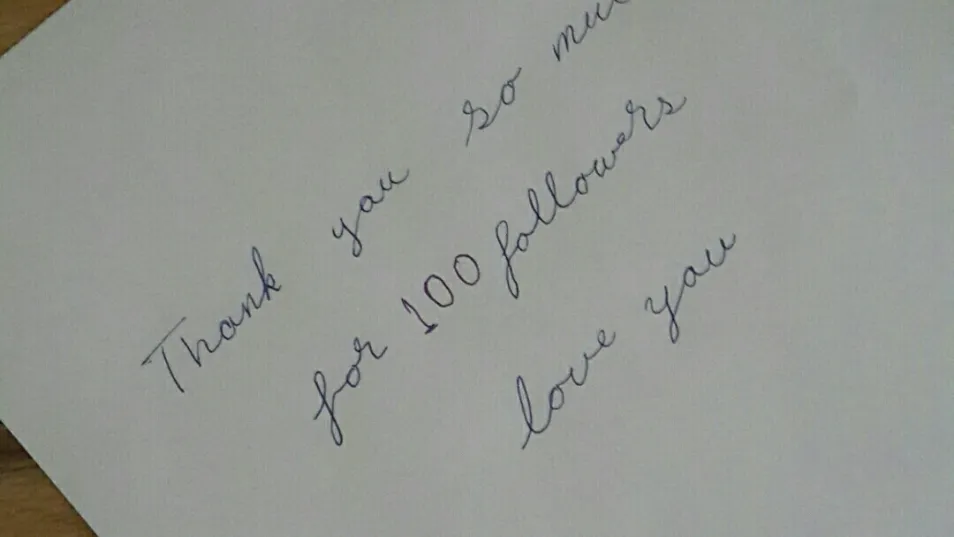 Thank you so mu
for 100 followers
love you